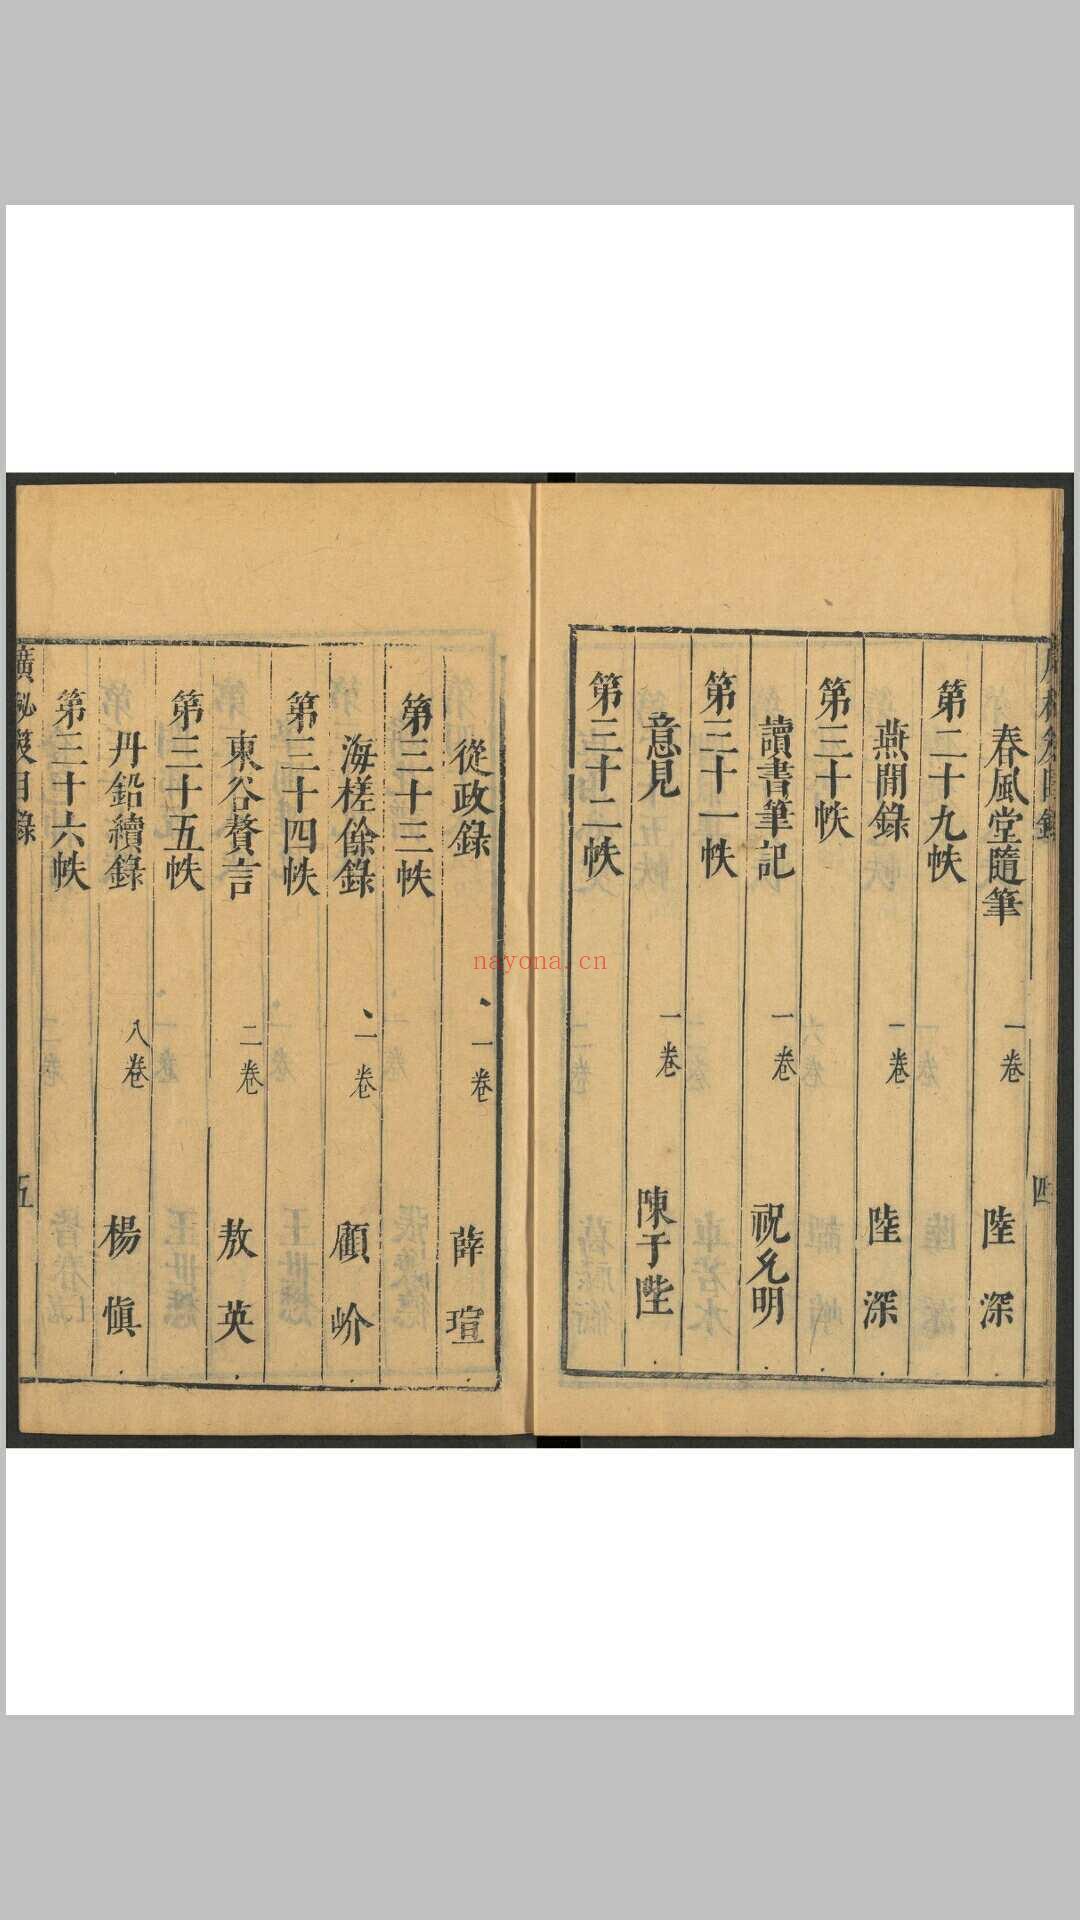 春風堂隨筆 一卷 陸深
第二十九帙
燕閒錄 一卷 陸深
第三十帙
讀書筆記 一卷 祝允明
第三十一帙
意見 一卷 陳于陛
第三十二帙
四
從政錄 一卷 薛瑄
第三十三帙
海槎餘錄 一卷 顧岕
第三十四帙
東谷贅言 二卷 敖英
第三十五帙
丹鉛續錄 八卷 楊慎
第三十六帙
廣秘笈目錄 五
nayona.cn